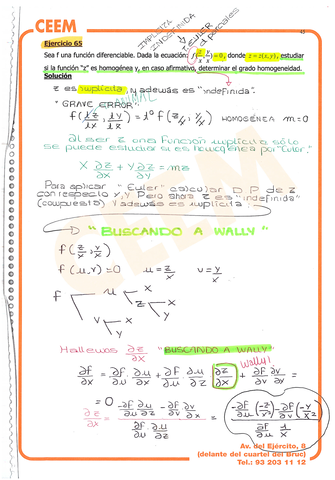 CEEM
IMPLÍCITA
INDEFINIDA
EULER
D parciales
45
Ejercicio 65
Sea f una función diferenciable. Dada la ecuación f(z/x, y/x) = 0, donde z = z(x, y), estudiar
si la función "z" es homogénea y, en caso afirmativo, determinar el grado homogeneidad.
Solución
z es implícita, y además es "indefinida".
"GRAVE ERROR" ANIMAL
f(λz/λx, λy/λx) = λ⁰ f(z/x, y/x) HOMOGÉNEA m=0
al ser z una función implícita sólo
se puede estudiar si es homogénea por "Euler".
x ∂z/∂x + y ∂z/∂y = mz
Para aplicar "Euler" calcular D.P de z
con respecto x,y. Pero ahora z es "indefinida"
(compuesta) y además es implícita.
"BUSCANDO A WALLY"
f(z/x, y/x)
f(u,v)=0 u=z/x v=y/x
f u x
z x
y
v x
y
Hallemos ∂z/∂x "BUSCANDO A WALLY"
wally!
∂f/∂x = ∂f/∂u · ∂u/∂x + ∂f/∂u · ∂u/∂z · ∂z/∂x + ∂f/∂v · ∂v/∂x =
= 0
Av. del Ejército, 8
(delante del cuartel del Bruc)
Tel.: 93 203 11 12